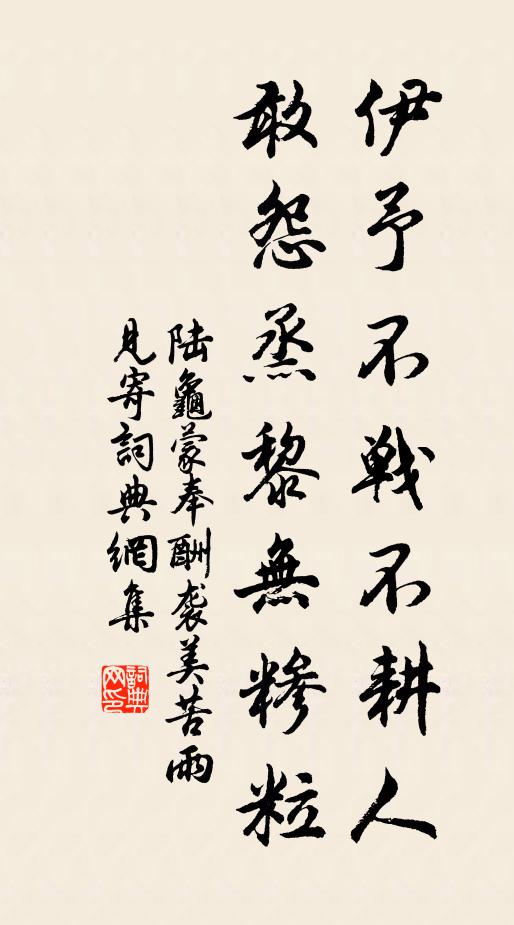 伊予不戦不耕人
敢怨烝黎無糝粒
陆龜蒙奉酬袭美苦雨
見寄詞典網集
詞典
网印